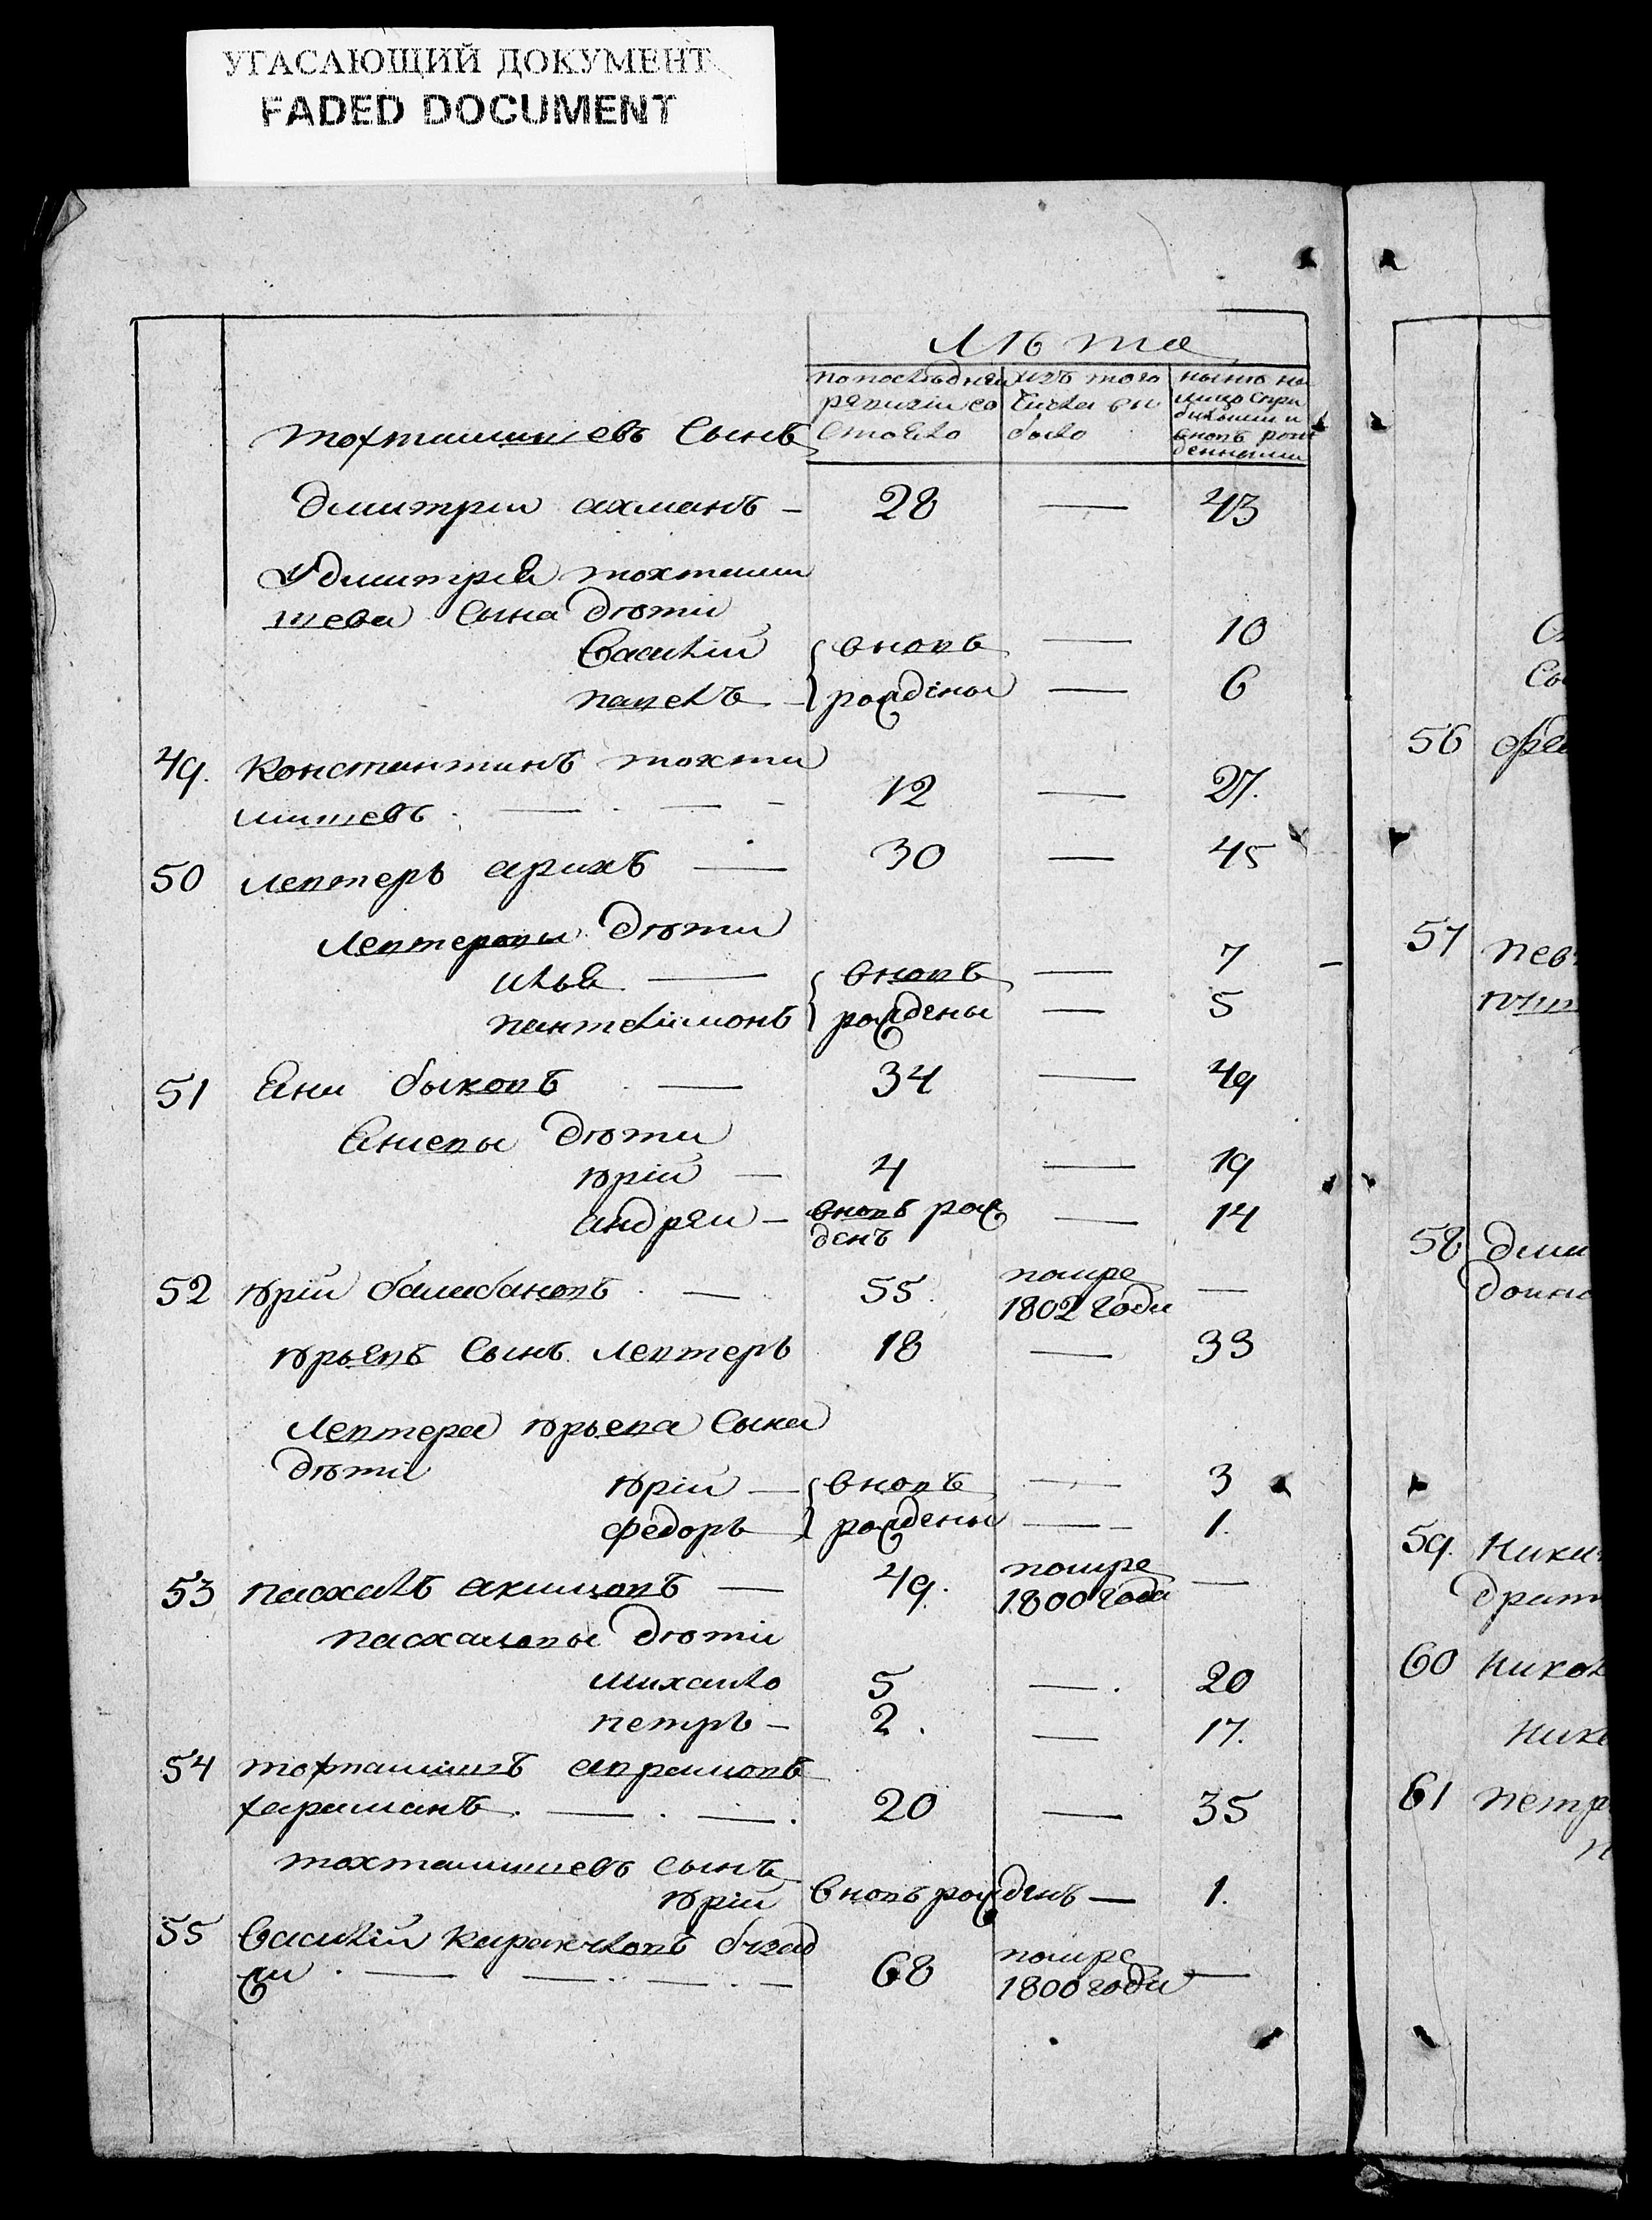 УГАСАЮЩИЙ ДОКУМЕНТ
FADED DOCUMENT
Лѣта
по последнеи ревизiи состояло
изъ того числа выбыло
ныне на лицо с прибылыми и вновь рожденными
тохтамышевъ сынъ
дмитрiи ахманъ — 28 — 43
У дмитрея тохтамы
шева сына дѣти
василiй } вновь — 10
павелъ — } рождены — 6
49. константинъ тохта
мышевъ. — 12 — 27.
50 лефтеръ арихъ — 30 — 45
лефтеровы дѣти
илья — } вновь — 7
пантелiимонъ } рождены — 5
51 Яни быковъ — 34 — 49
Яниевы дѣти
юрiй — 4 — 19
андреи — вновь рож — 14
денъ
52 юрiй балабановъ — 55. помре —
1802 года
юрьевъ сынъ лефтеръ 18 — 33
лефтера юрьева сына
дѣти
юрiй — } вновь — 3
федоръ } рождены — 1.
53 пасхалъ акимовъ — 49. помре —
1800 года
пасхаловы дѣти
михаило 5 — 20
петръ — 2. — 17.
54 тохтамышъ аврамовъ
хараманъ. — 20 — 35
тохтамышевъ сынъ
юрiй вновь рожденъ — 1.
55 василiй каракчловъ
68 помре —
1800 года
56
57
58
59.
60
61